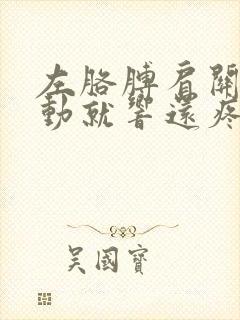 左胳膊肩關
動就響還疼
吴國寶